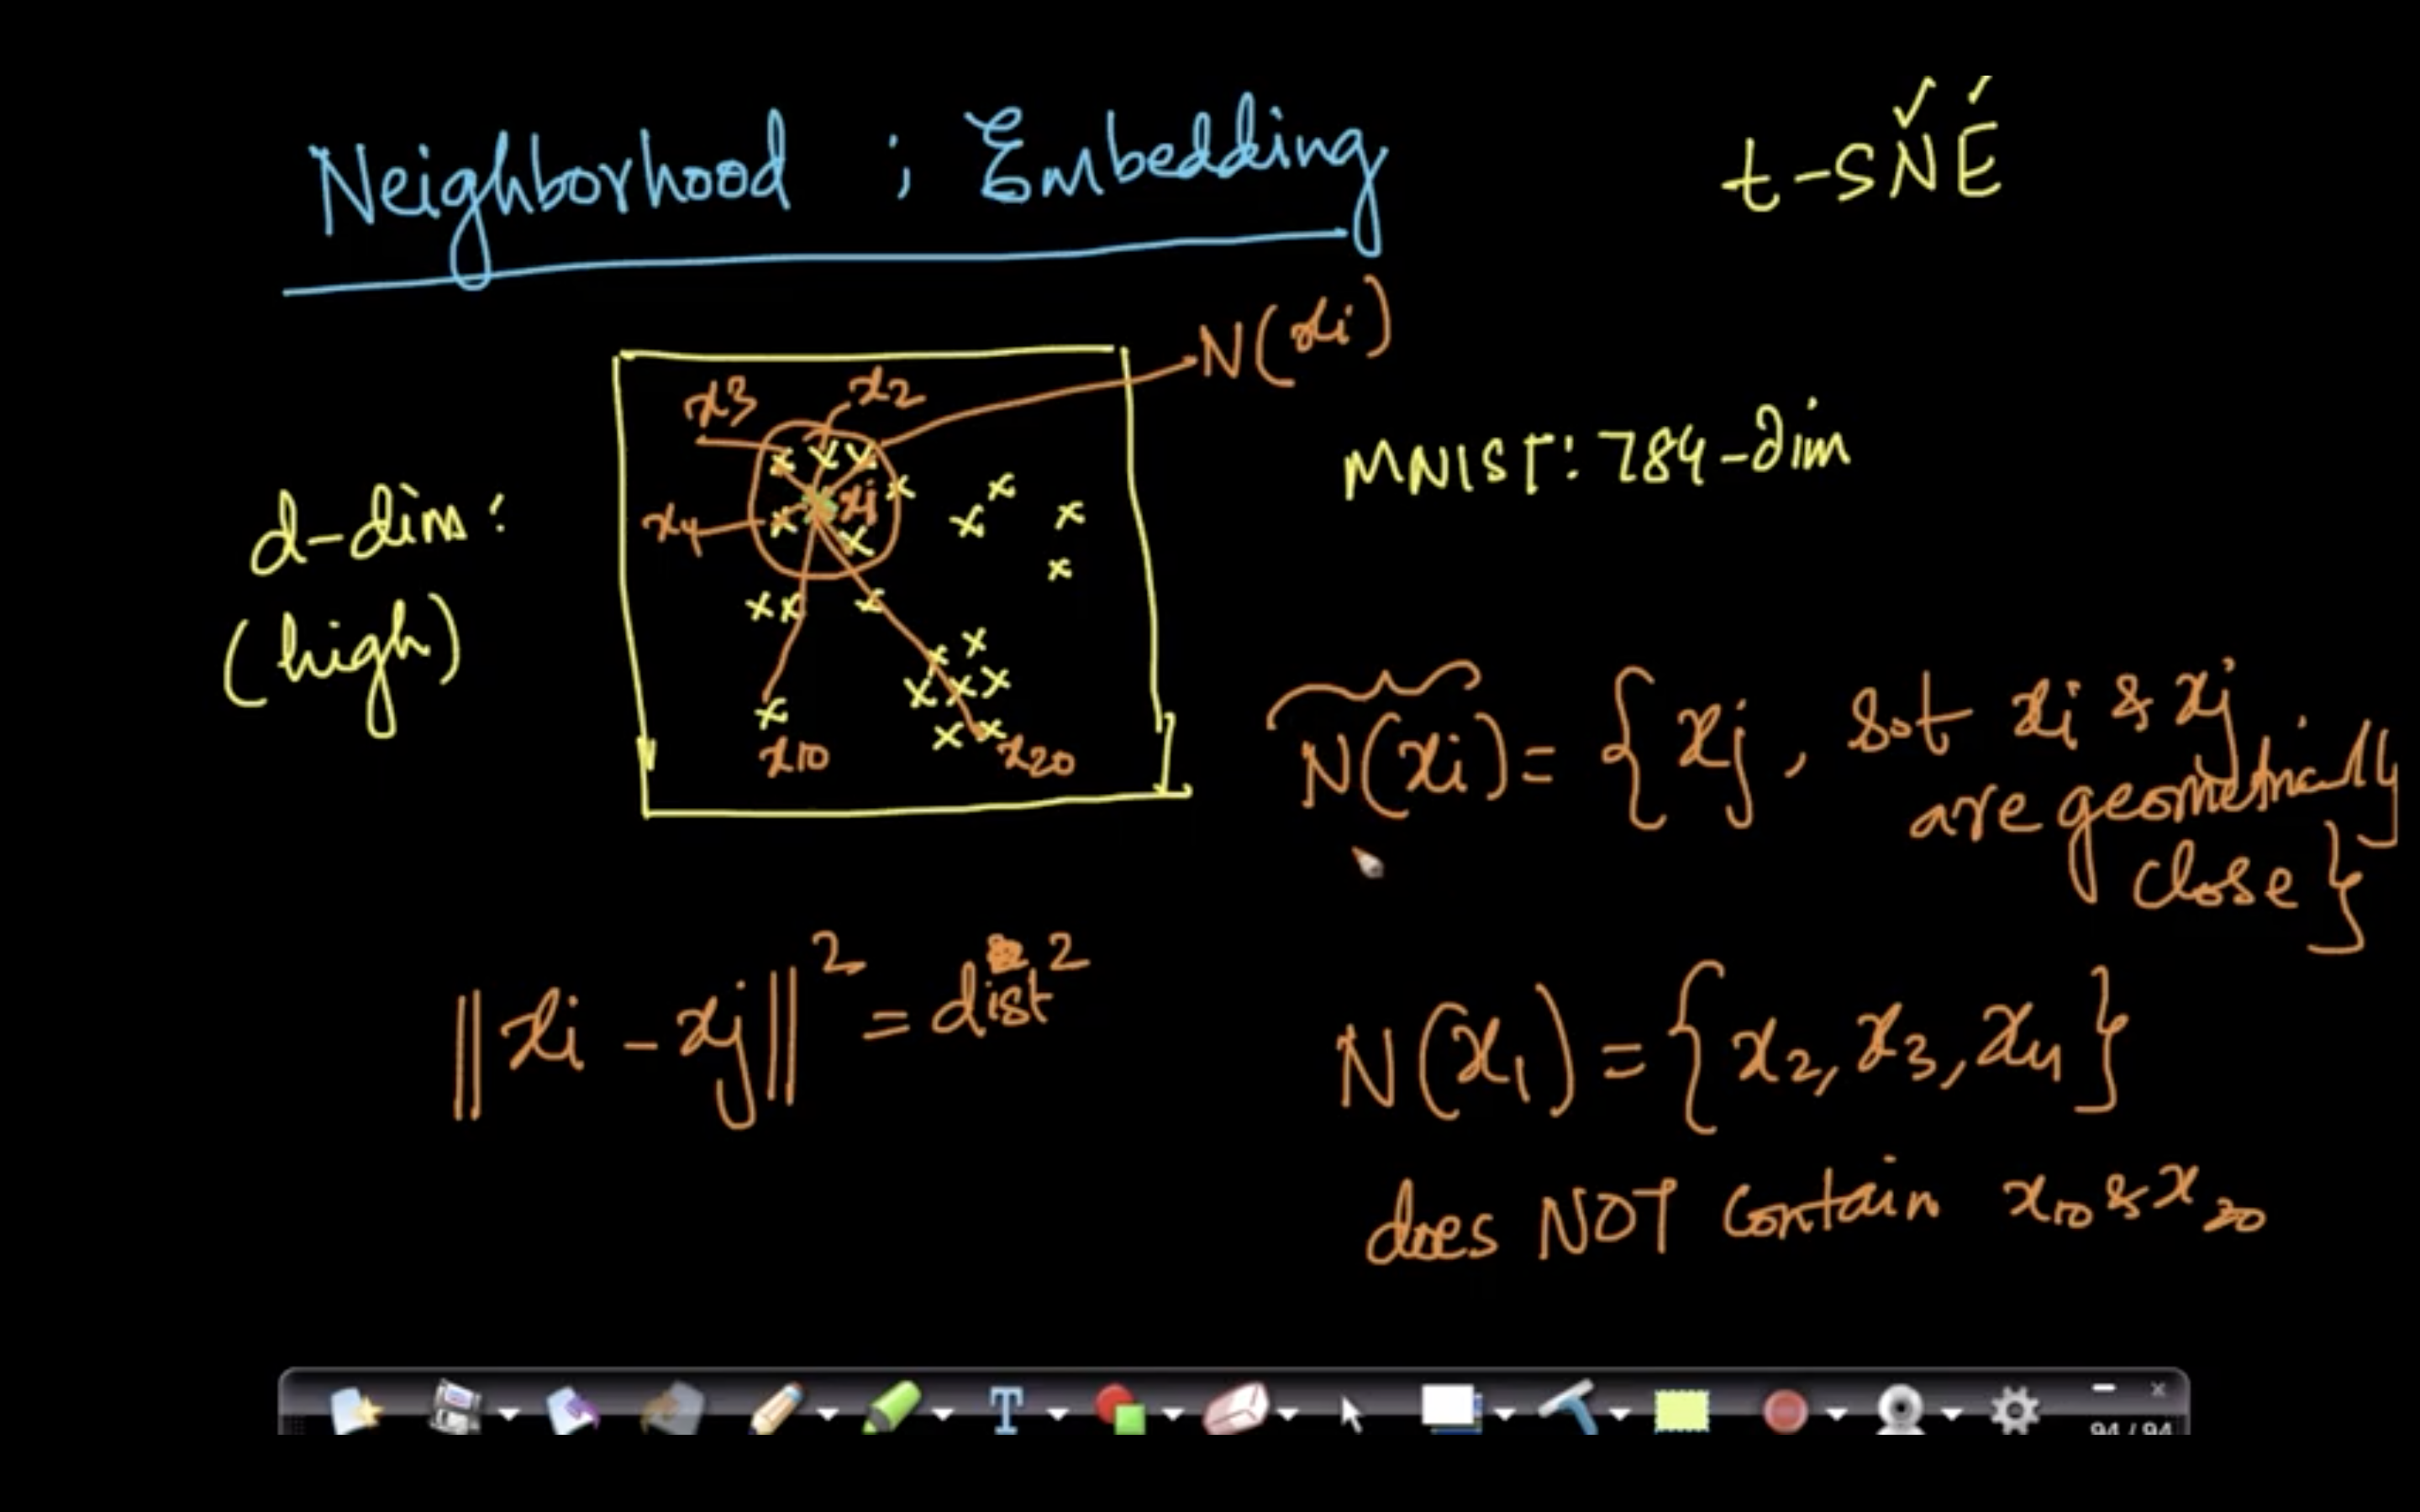 Neighborhood ; Embedding
t-SNE
N(xi)
x3
x2
xi
x4
x10
x20
d-dim:
(high)
MNIST: 784-dim
N(xi) = { xj, s.t xi & xj
are geometrically
close }
||xi - xj||² = dist²
N(x₁) = {x₂, x₃, x₄}
does NOT contain x₁₀ & x₂₀
T
94 / 94